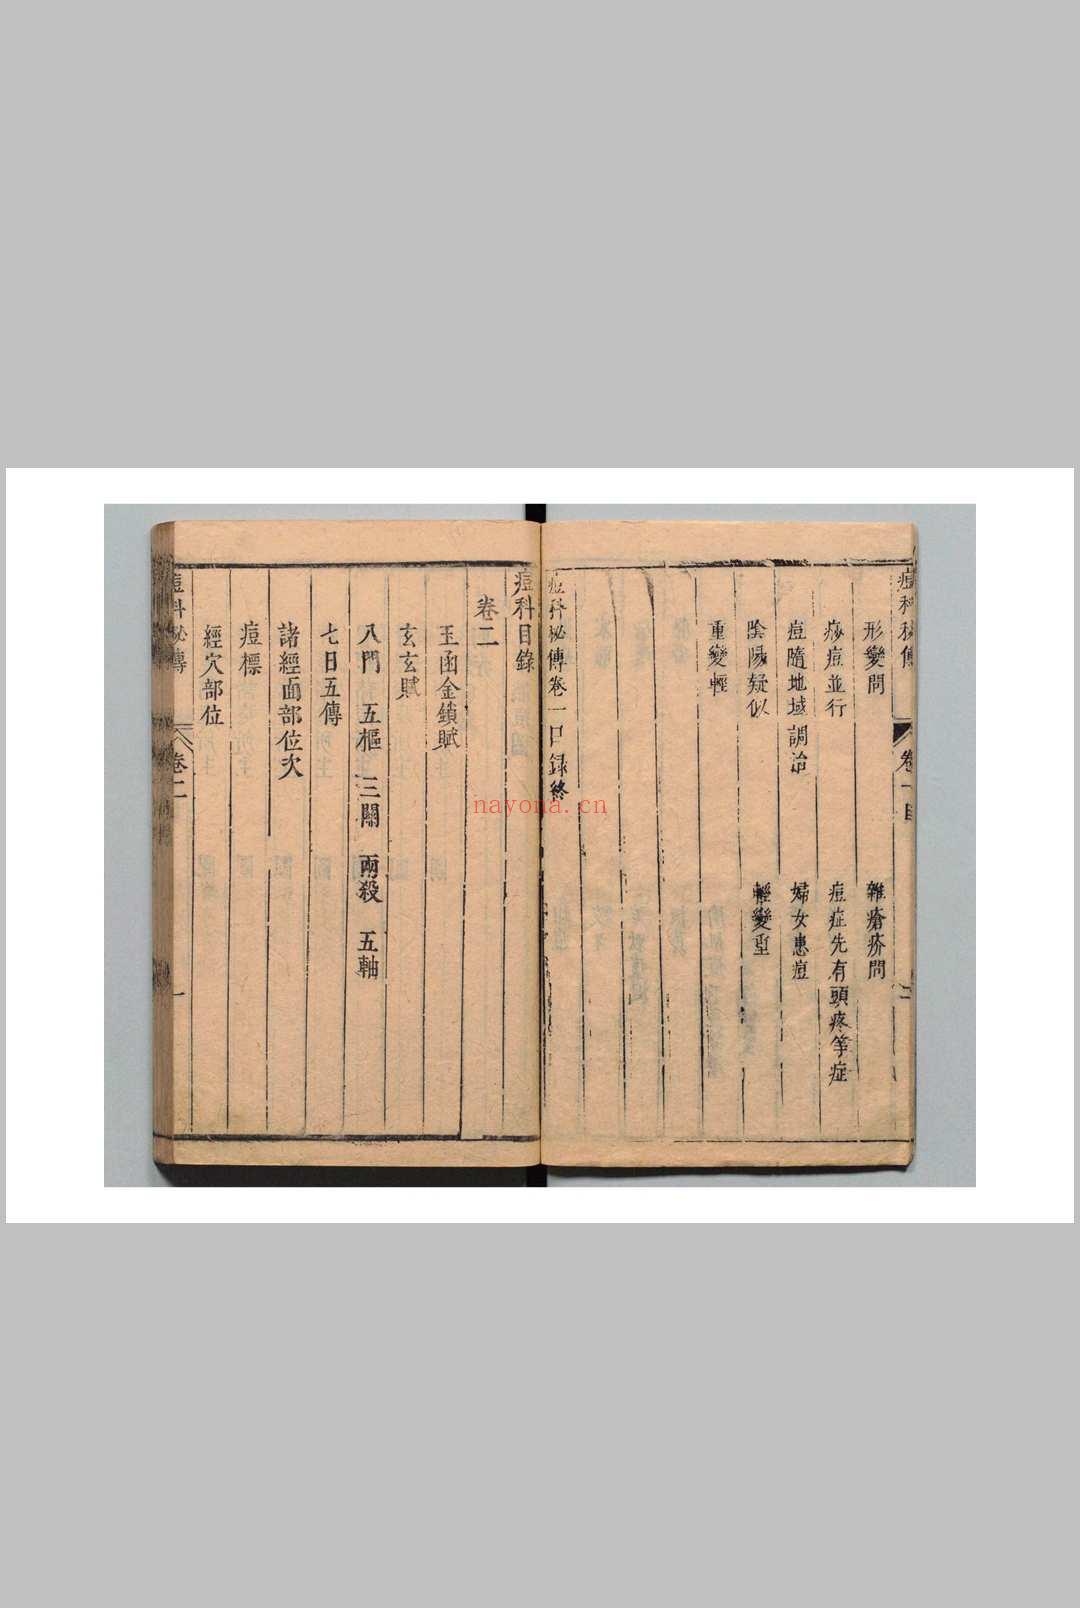 痘科秘傳 卷一目 二
形變問 雜瘡疥問
痧痘並行 痘症先有頭疼等症
痘隨地域調治 婦女患痘
陰陽疑似 輕變重
重變輕
痘科秘傳卷一目録終
痘科目錄
卷二
玉函金鎖賦
玄玄賦
八門 五樞 三關 兩殺 五軸
七日五傳
諸經面部位次
痘標
經穴部位
痘科秘傳 卷二 一
nayona.cn